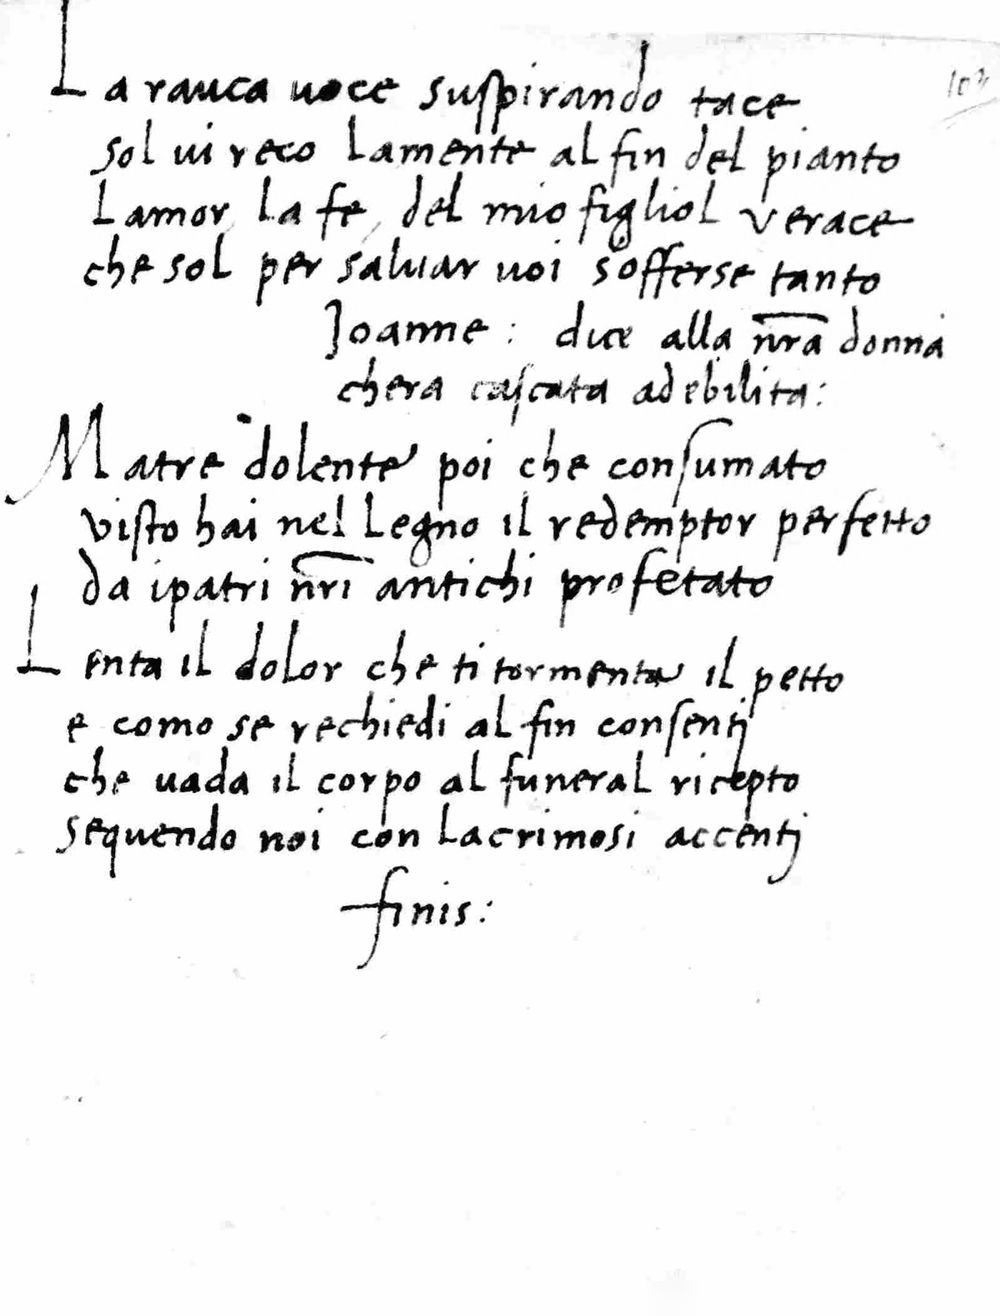 103
La rauca uoce suspirando tace
sol ui reco Lamente al fin del pianto
Lamor, la fe, del mio figliol verace
che sol per saluar uoi sofferse tanto
Joanne: dice alla nra donna
chera cascata adebilita:
Matre dolente poi che consumato
visto hai nel Legno il redemptor perfetto
da ipatri nri antichi profetato
Lenta il dolor che ti tormenta il petto
e como se rechiedi al fin consentj
che uada il corpo al funeral ricepto
sequendo noi con Lacrimosi accentj
finis: